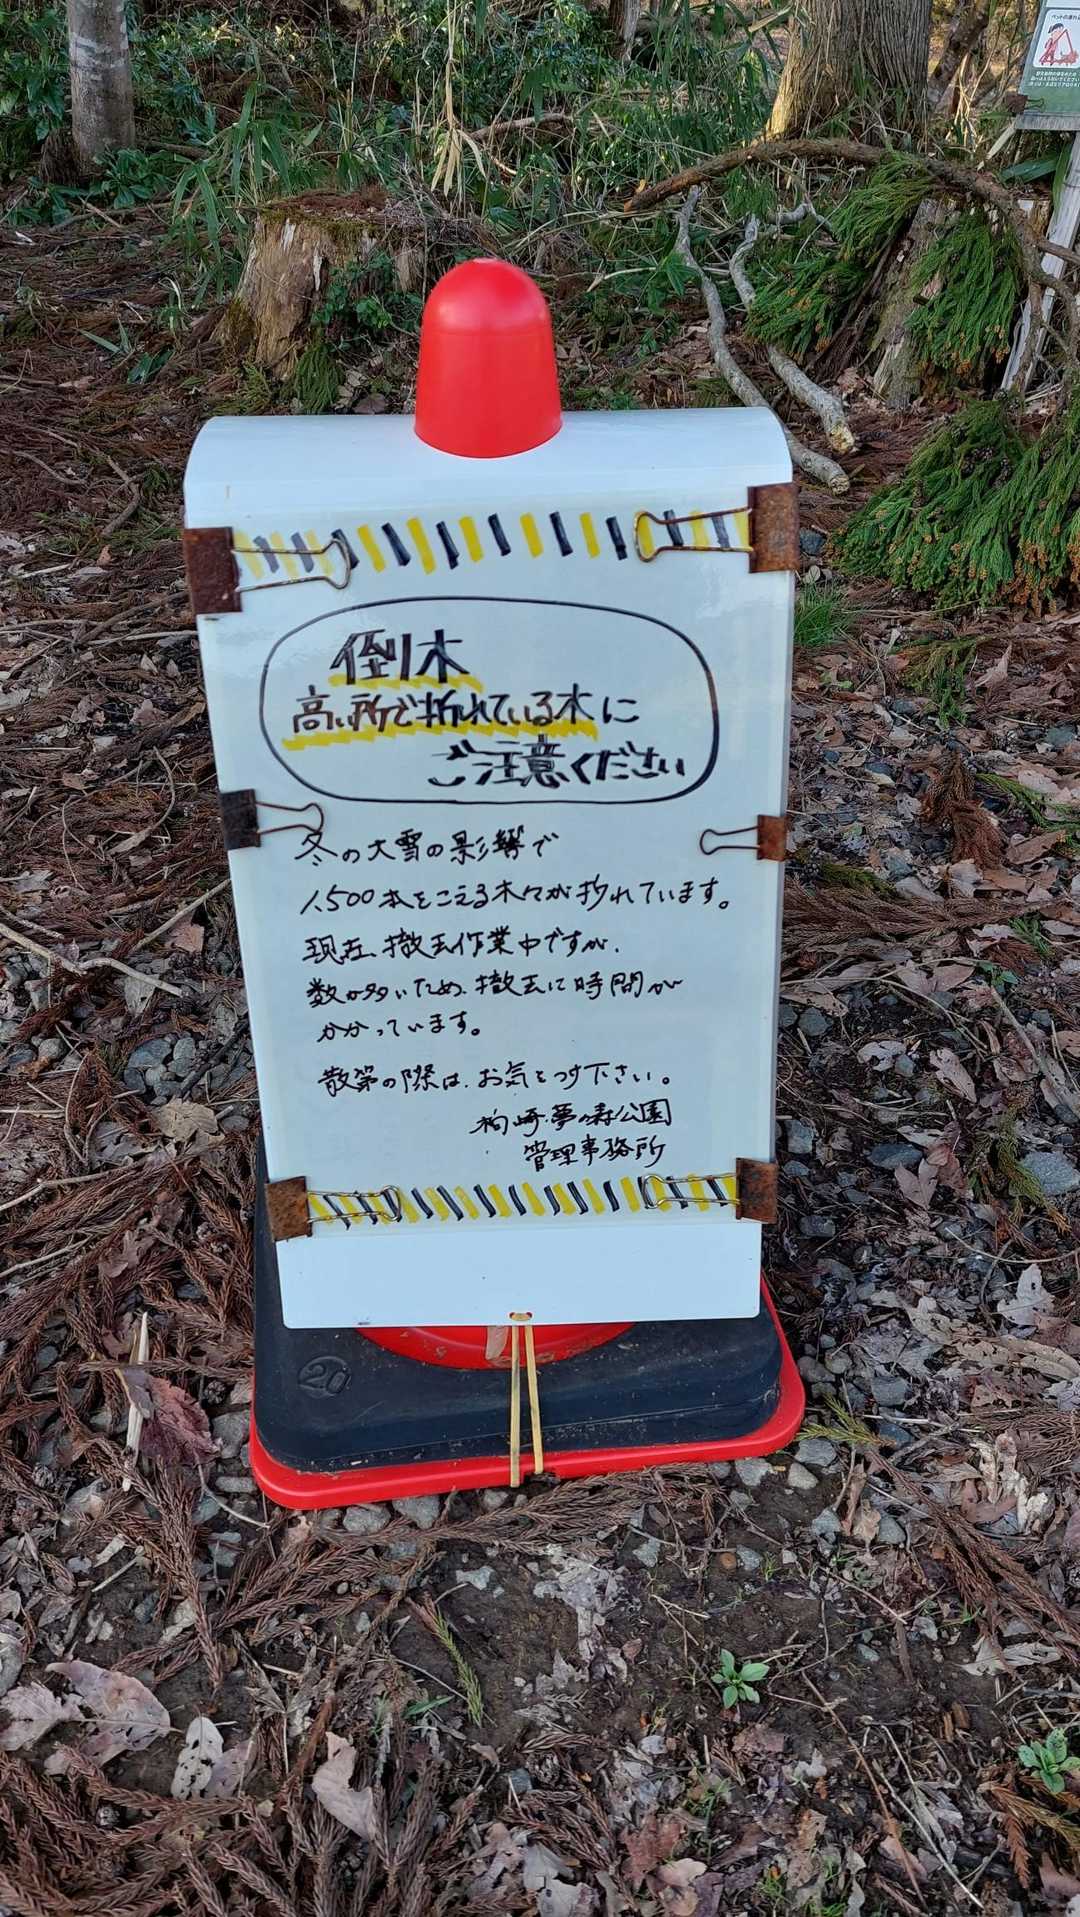 倒木
高い所で折れている木に
ご注意ください
冬の大雪の影響で
1,500本をこえる木々が折れています。
現在、撤去作業中ですが、
数が多いため、撤去に時間が
かかっています。
散策の際は、お気をつけ下さい。
柏崎・夢の森公園
管理事務所
20